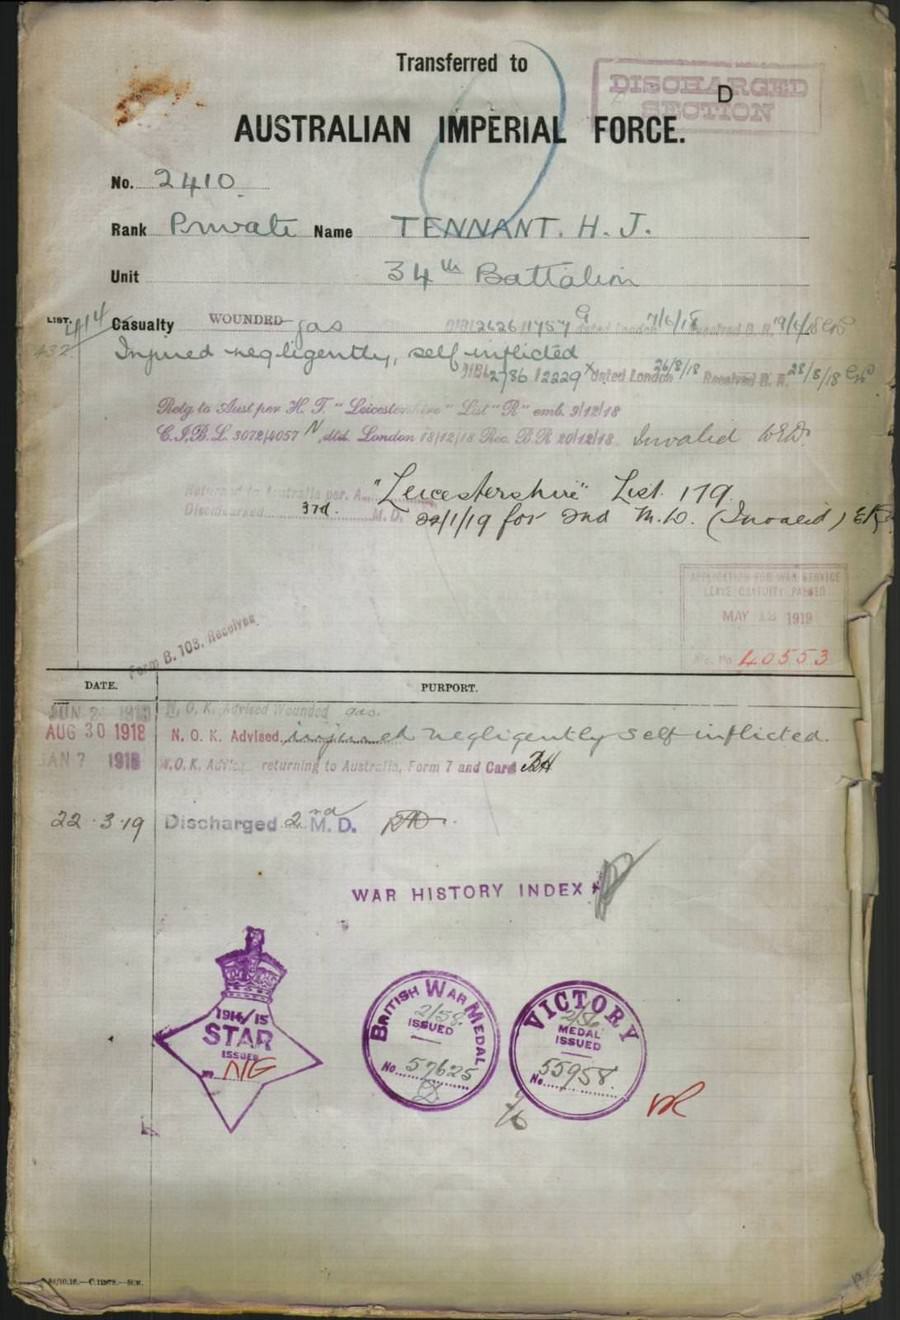 Transferred to
DISCHARGED
SECTION
D
AUSTRALIAN IMPERIAL FORCE.
No. 2410
Rank Private Name TENNANT. H. J.
Unit 34th Battalion
LIST. 414
432
Casualty WOUNDED gas 7/6/18 9/6/18
Injured negligently, self inflicted
2786 12229 dated London 26/8/18 Received B. R. 28/8/18
Retg to Aust per H. T. "Leicestershire" List "R" emb. 9/12/18
C.I.B.L. 3072/4057 N, dtd. London 18/12/18 Rec. B.R. 20/12/18. Invalid
Returned to Australia per. "Leicestershire" List 179.
Discharged 3rd. M. D. /1/19 for 2nd M.D. (Invalid)
APPLICATION FOR WAR SERVICE
LEAVE GRATUITY PASSED
MAY 1919
40553
Form B. 103. Received
DATE. PURPORT.
JUN N. O. K. Advised Wounded gas.
AUG 30 1918 N. O. K. Advised injured negligently self inflicted.
JAN 7 1918 N.O.K. returning to Australia, Form 7 and Card
22.3.19 Discharged 2nd M. D.
WAR HISTORY INDEX
1914/15
STAR
ISSUED
No NG
BRITISH WAR MEDAL
2/58
ISSUED
No. 57625
VICTORY
MEDAL
ISSUED
No. 55958.